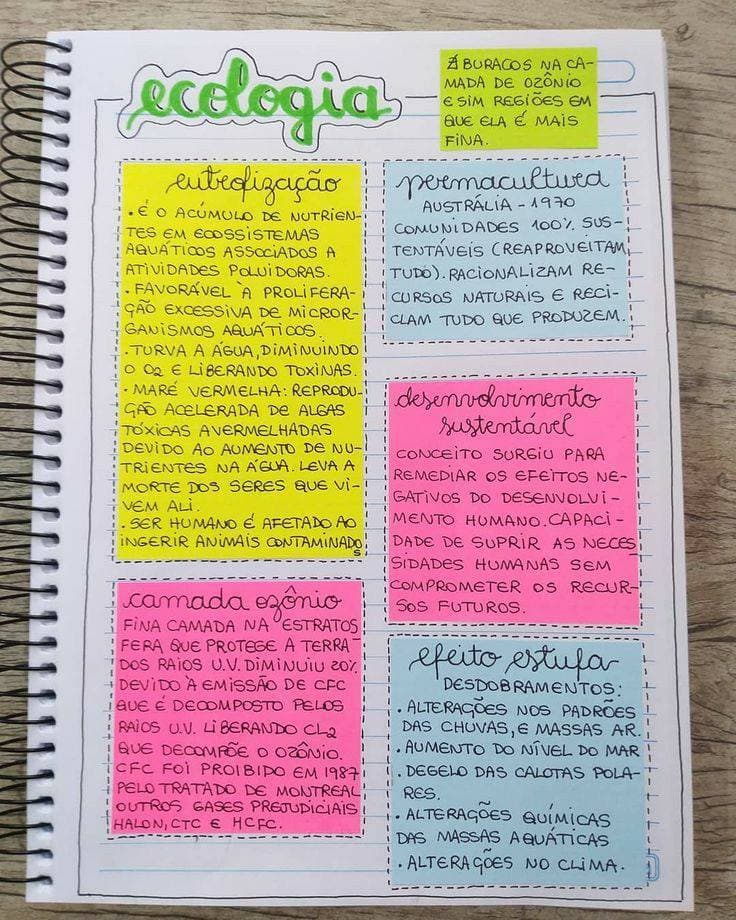 ecologia
∄ BURACOS NA CA-
MADA DE OZÔNIO
E SIM REGIÕES EM
QUE ELA É MAIS
FINA.
eutrofização
• É O ACÚMULO DE NUTRIEN-
TES EM ECOSSISTEMAS
AQUÁTICOS ASSOCIADOS A
ATIVIDADES POLUIDORAS.
• FAVORÁVEL À PROLIFERA-
ÇÃO EXCESSIVA DE MICROR-
GANISMOS AQUÁTICOS.
• TURVA A ÁGUA, DIMINUINDO
O O2 E LIBERANDO TOXINAS.
• MARÉ VERMELHA: REPRODU-
ÇÃO ACELERADA DE ALGAS
TÓXICAS AVERMELHADAS
DEVIDO AO AUMENTO DE NU-
TRIENTES NA ÁGUA. LEVA A
MORTE DOS SERES QUE VI-
VEM ALI.
• SER HUMANO É AFETADO AO
INGERIR ANIMAIS CONTAMINADOS
permacultura
AUSTRÁLIA - 1970
COMUNIDADES 100% SUS-
TENTÁVEIS (REAPROVEITAM
TUDO). RACIONALIZAM RE-
CURSOS NATURAIS E RECI-
CLAM TUDO QUE PRODUZEM.
desenvolvimento
sustentável
CONCEITO SURGIU PARA
REMEDIAR OS EFEITOS NE-
GATIVOS DO DESENVOLVI-
MENTO HUMANO. CAPACI-
DADE DE SUPRIR AS NECES
SIDADES HUMANAS SEM
COMPROMETER OS RECUR-
SOS FUTUROS.
camada ozônio
FINA CAMADA NA ESTRATOS
FERA QUE PROTEGE A TERRA
DOS RAIOS U.V. DIMINUIU 20%
DEVIDO À EMISSÃO DE CFC
QUE É DECOMPOSTO PELOS
RAIOS U.V. LIBERANDO CL2
QUE DECOMPÕE O OZÔNIO.
CFC FOI PROIBIDO EM 1987
PELO TRATADO DE MONTREAL
OUTROS GASES PREJUDICIAIS
HALON, CTC E HCFC.
efeito estufa
DESDOBRAMENTOS:
• ALTERAÇÕES NOS PADRÕES
DAS CHUVAS, E MASSAS AR.
• AUMENTO DO NÍVEL DO MAR
• DEGELO DAS CALOTAS POLA-
RES.
• ALTERAÇÕES QUÍMICAS
DAS MASSAS AQUÁTICAS
• ALTERAÇÕES NO CLIMA.